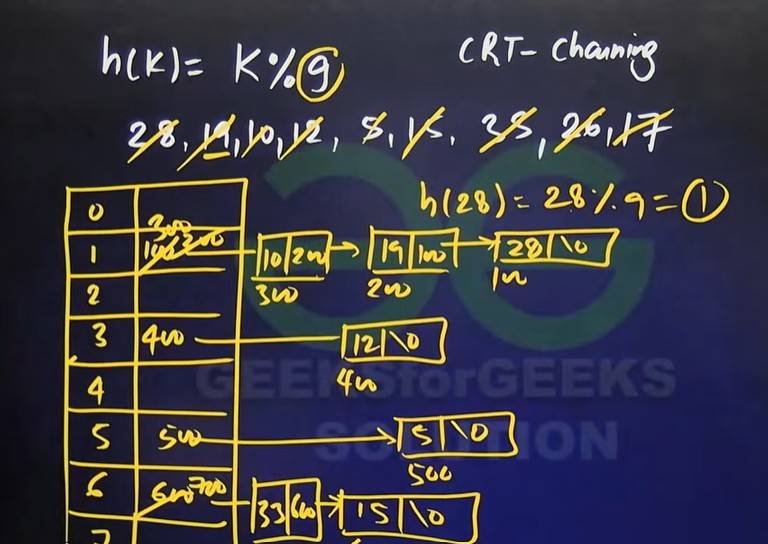 h(K) = K % 9
CRT- Chaining
28, 19, 10, 12, 5, 15, 33, 26, 17
h(28) = 28 % 9 = 1
0
300
1 100 200 10 200 19 100 28 \0
300 200 100
2
3 400 12 \0
400
4
GEEKSforGEEKS
SOLUTION
5 500 5 \0
500
6 600 700 33 600 15 \0
7